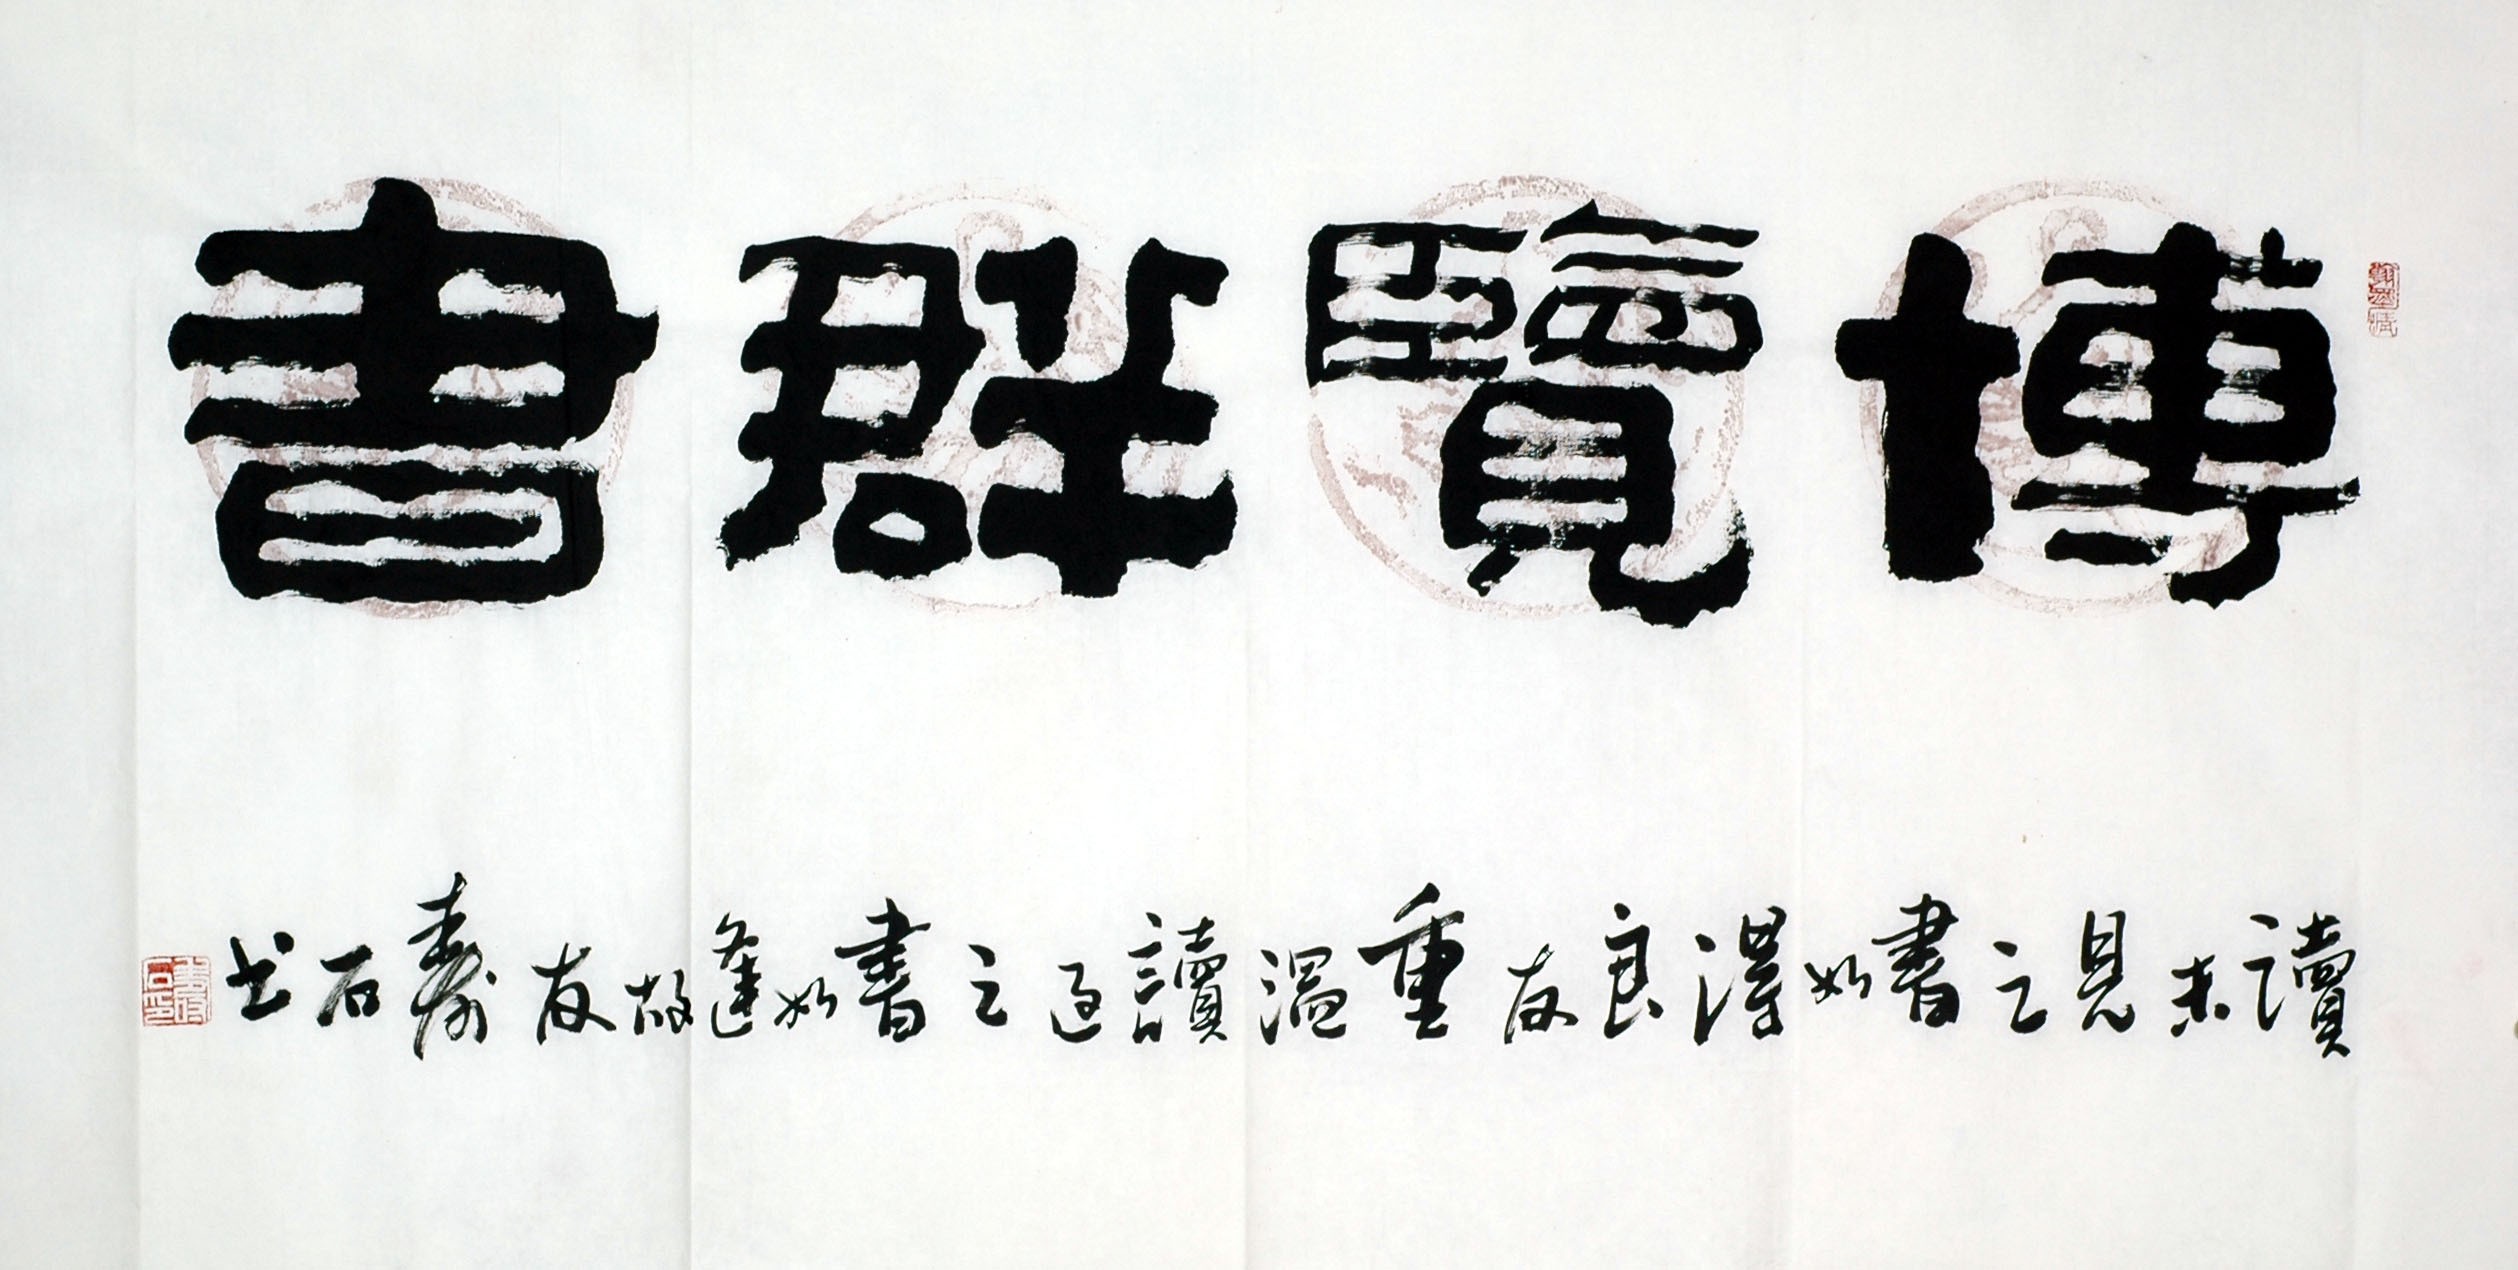 博覽群書
讀未見之書如得良友重溫讀過之書如逢故友壽石書